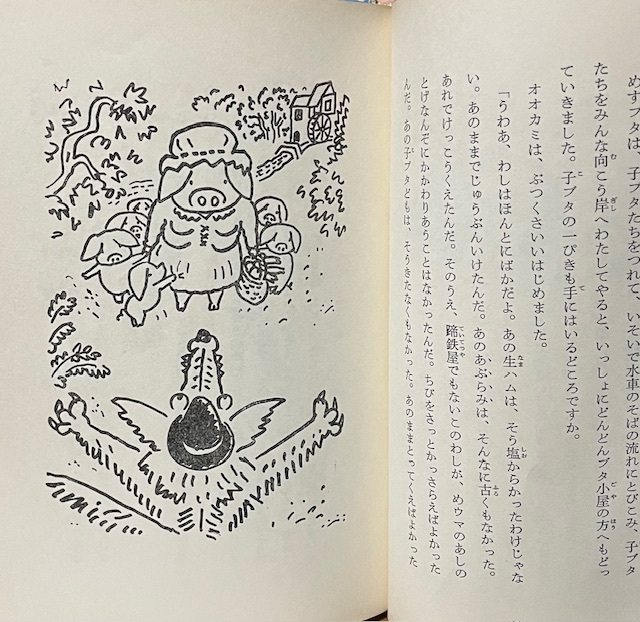 めすブタは、子ブタたちをつれて、いそいで水車のそばの流れにとびこみ、子ブタ
たちをみんな向こう岸へわたしてやると、いっしょにどんどんブタ小屋の方へもどっ
ていきました。子ブタの一ぴきも手にはいるどころですか。
オオカミは、ぶつくさいいはじめました。
「うわあ、わしはほんとにばかだよ。あの生ハムは、そう塩からかったわけじゃな
い。あのままでじゅうぶんいけたんだ。あのあぶらみは、そんなに古くもなかった。
あれでけっこうくえたんだ。そのうえ、蹄鉄屋でもないこのわしが、めウマのあしの
とげなんぞにかかわりあうことはなかったんだ。ちびをさっとかっさらえばよかった
んだ。あの子ブタどもは、そうきたなくもなかった。あのままとってくえばよかった